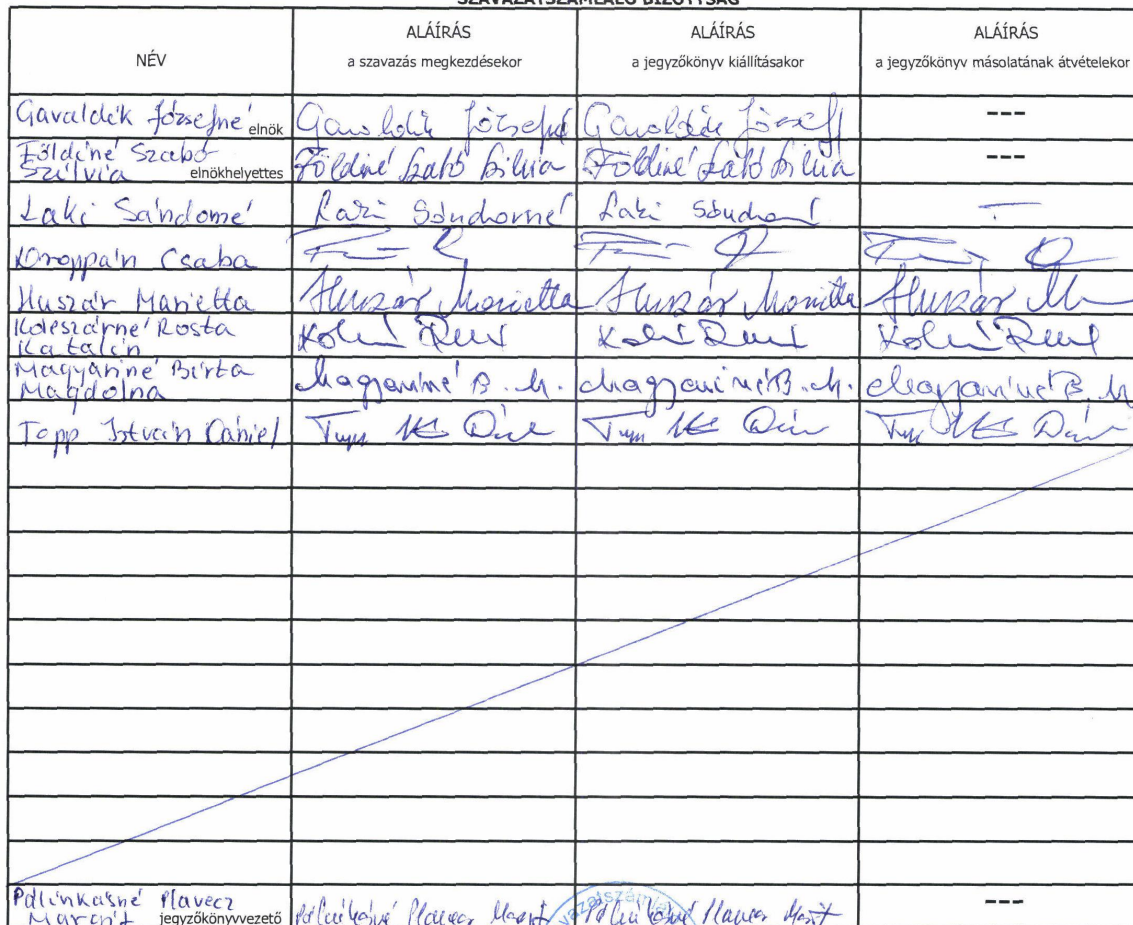 SZAVAZATSZÁMLÁLÓ BIZOTTSÁG
NÉV
ALÁÍRÁS
a szavazás megkezdésekor
ALÁÍRÁS
a jegyzőkönyv kiállításakor
ALÁÍRÁS
a jegyzőkönyv másolatának átvételekor
Gavaldik Józsefné elnök Gavaldik Józsefné Gavaldik József ---
Földiné Szabó
Szilvia elnökhelyettes Földiné Szabó Szilvia Földiné Szabó Szilvia ---
Laki Sándorné Laki Sándorné Laki Sándorné —
Koroppán Csaba
Huszár Marietta Huszár Marietta Huszár Marietta Huszár M
Koleszárné Rosta
Katalin
Magyariné Birta
Magdolna Magyariné B. M. Magyariné B. M. Magyariné B. M.
Topp István Dániel
Pálinkásné Plavecz
Margit jegyzőkönyvvezető Pálinkásné Plavecz Margit Pálinkásné Plavecz Margit ---